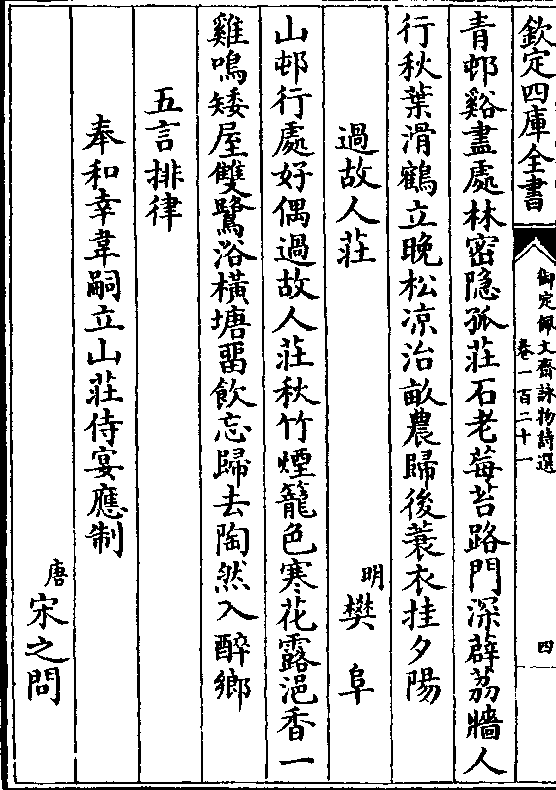 欽定四庫全書
御定佩文齋詠物詩選
卷一百二十一
四
青邨谿盡處林密隐孤莊石老莓苔路門深薜荔牆人
行秋葉滑鶴立晚松凉治畝農歸後蓑衣挂夕陽
過故人莊
明樊阜
山邨行處好偶過故人莊秋竹煙籠色寒花露浥香一
雞鳴矮屋雙鷺浴橫塘畱飲忘歸去陶然入醉鄉
五言排律
奉和幸韋嗣立山莊侍宴應制
唐宋之問